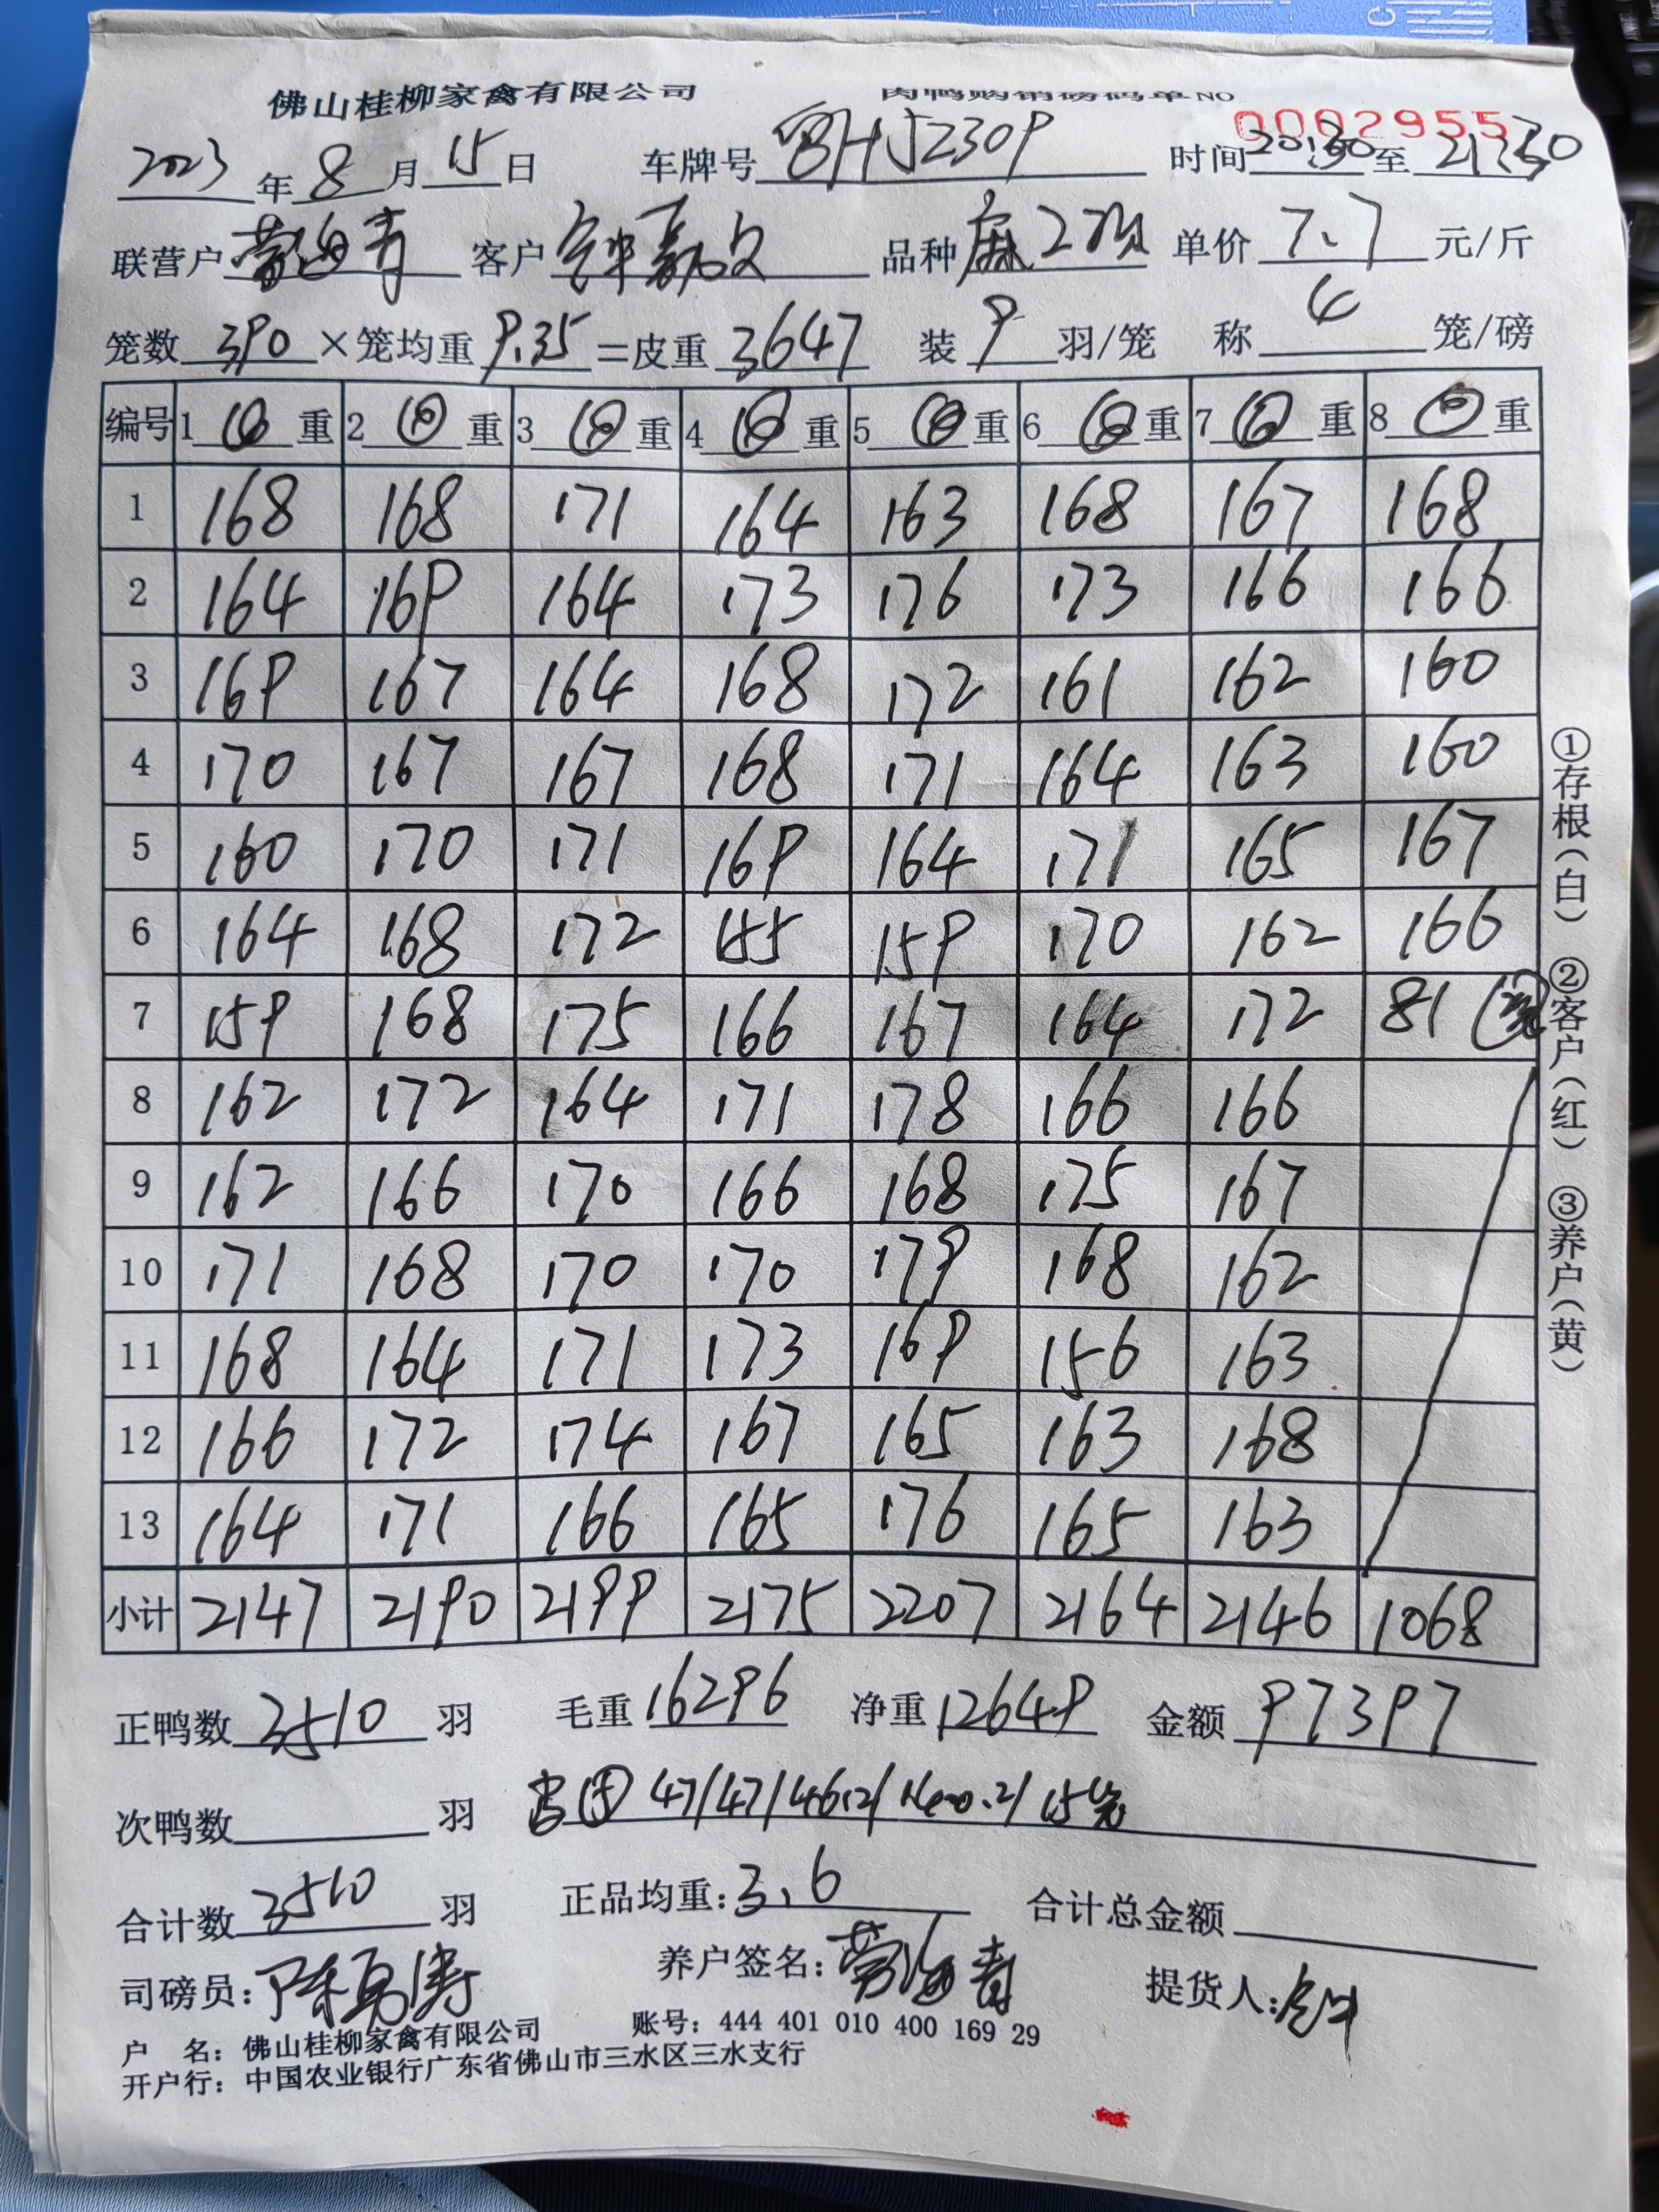 佛山桂柳家禽有限公司 肉鸭购销磅码单NO 0002955
2023年8月15日 车牌号 粤HJ2309 时间20:30至21:30
联营户 客户 钟 品种 麻2 单价 7.7 元/斤
笼数 390 ×笼均重 9.35 =皮重 3647 装 9 羽/笼 称 4 笼/磅
编号 1 重 2 重 3 重 4 重 5 重 6 重 7 重 8 重
1 168 168 171 164 163 168 167 168
2 164 169 164 173 176 173 166 166
3 169 167 164 168 172 161 162 160
4 170 167 167 168 171 164 163 160
5 160 170 171 169 164 171 165 167
6 164 168 172 155 159 170 162 166
7 159 168 175 166 167 164 172 81
8 162 172 164 171 178 166 166
9 162 166 170 166 168 175 167
10 171 168 170 170 179 168 162
11 168 164 171 173 169 156 163
12 166 172 174 167 165 163 168
13 164 171 166 165 176 165 163
小计 2147 2190 2199 2175 2207 2164 2146 1068
正鸭数 3510 羽 毛重 16296 净重 12649 金额 97397
次鸭数 羽 47/47/46.2/
合计数 3510 羽 正品均重: 3.6 合计总金额
司磅员: 陈勇涛 养户签名: 提货人: 钟
户 名: 佛山桂柳家禽有限公司 账号: 444 401 010 400 169 29
开户行: 中国农业银行广东省佛山市三水区三水支行
①存根(白) ②客户(红) ③养户(黄)